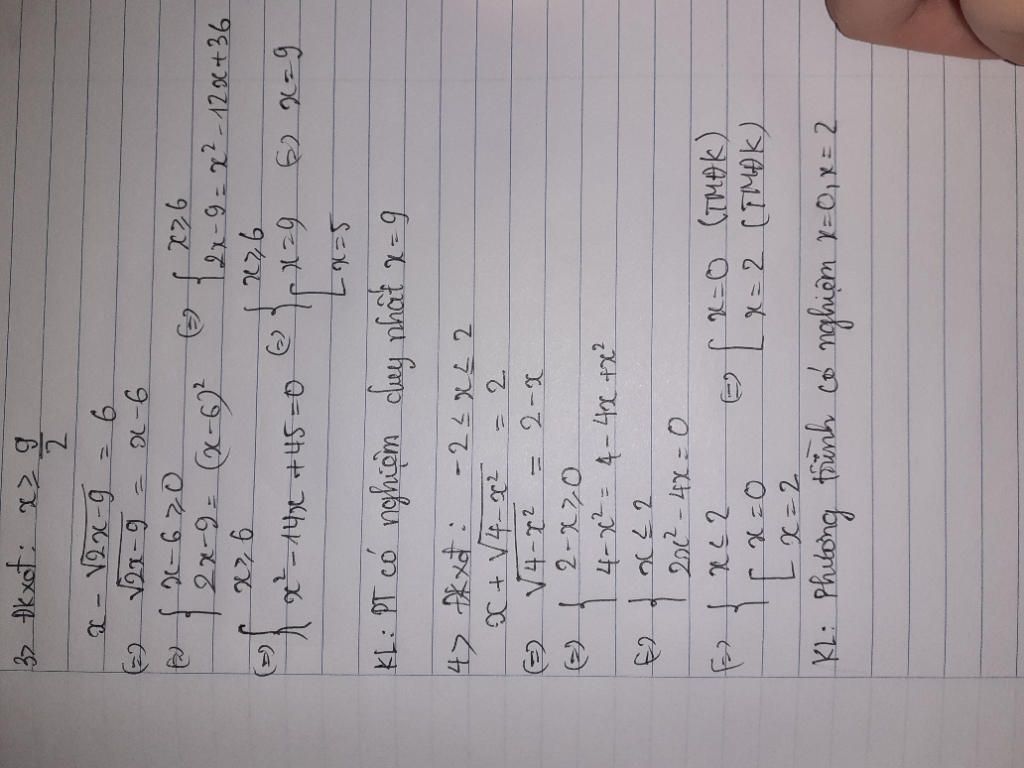 3> ĐKXĐ: x ≥ 9/2
x - √(2x-9) = 6
(=) √(2x-9) = x-6
(=) { x-6 ≥ 0 ; 2x-9 = (x-6)² (=) { x ≥ 6 ; 2x-9 = x² - 12x + 36
(=) { x ≥ 6 ; x² - 14x + 45 = 0 (=) { x ≥ 6 ; [ x = 9 ; x = 5 (=) x = 9
KL: PT có nghiệm duy nhất x = 9
4> ĐKXĐ: -2 ≤ x ≤ 2
x + √(4-x²) = 2
(=) √(4-x²) = 2-x
(=) { 2-x ≥ 0 ; 4-x² = 4-4x+x²
(=) { x ≤ 2 ; 2x² - 4x = 0
(=) { x ≤ 2 ; [ x = 0 ; x = 2 (=) [ x = 0 (TMĐK) ; x = 2 (TMĐK)
KL: Phương trình có nghiệm x=0, x=2